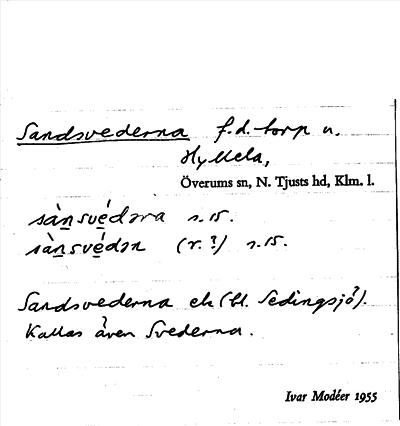 Sandsvederna f.d. torp u.
Hyllela,
Överums sn, N. Tjusts hd, Klm. l.
sànsvédəra s. 15.
sànsvédən (r. ?) s. 15.
Sandsvederna ek (bl. Sedingsjö?).
Kallas även Svederna.
Ivar Modéer 1955